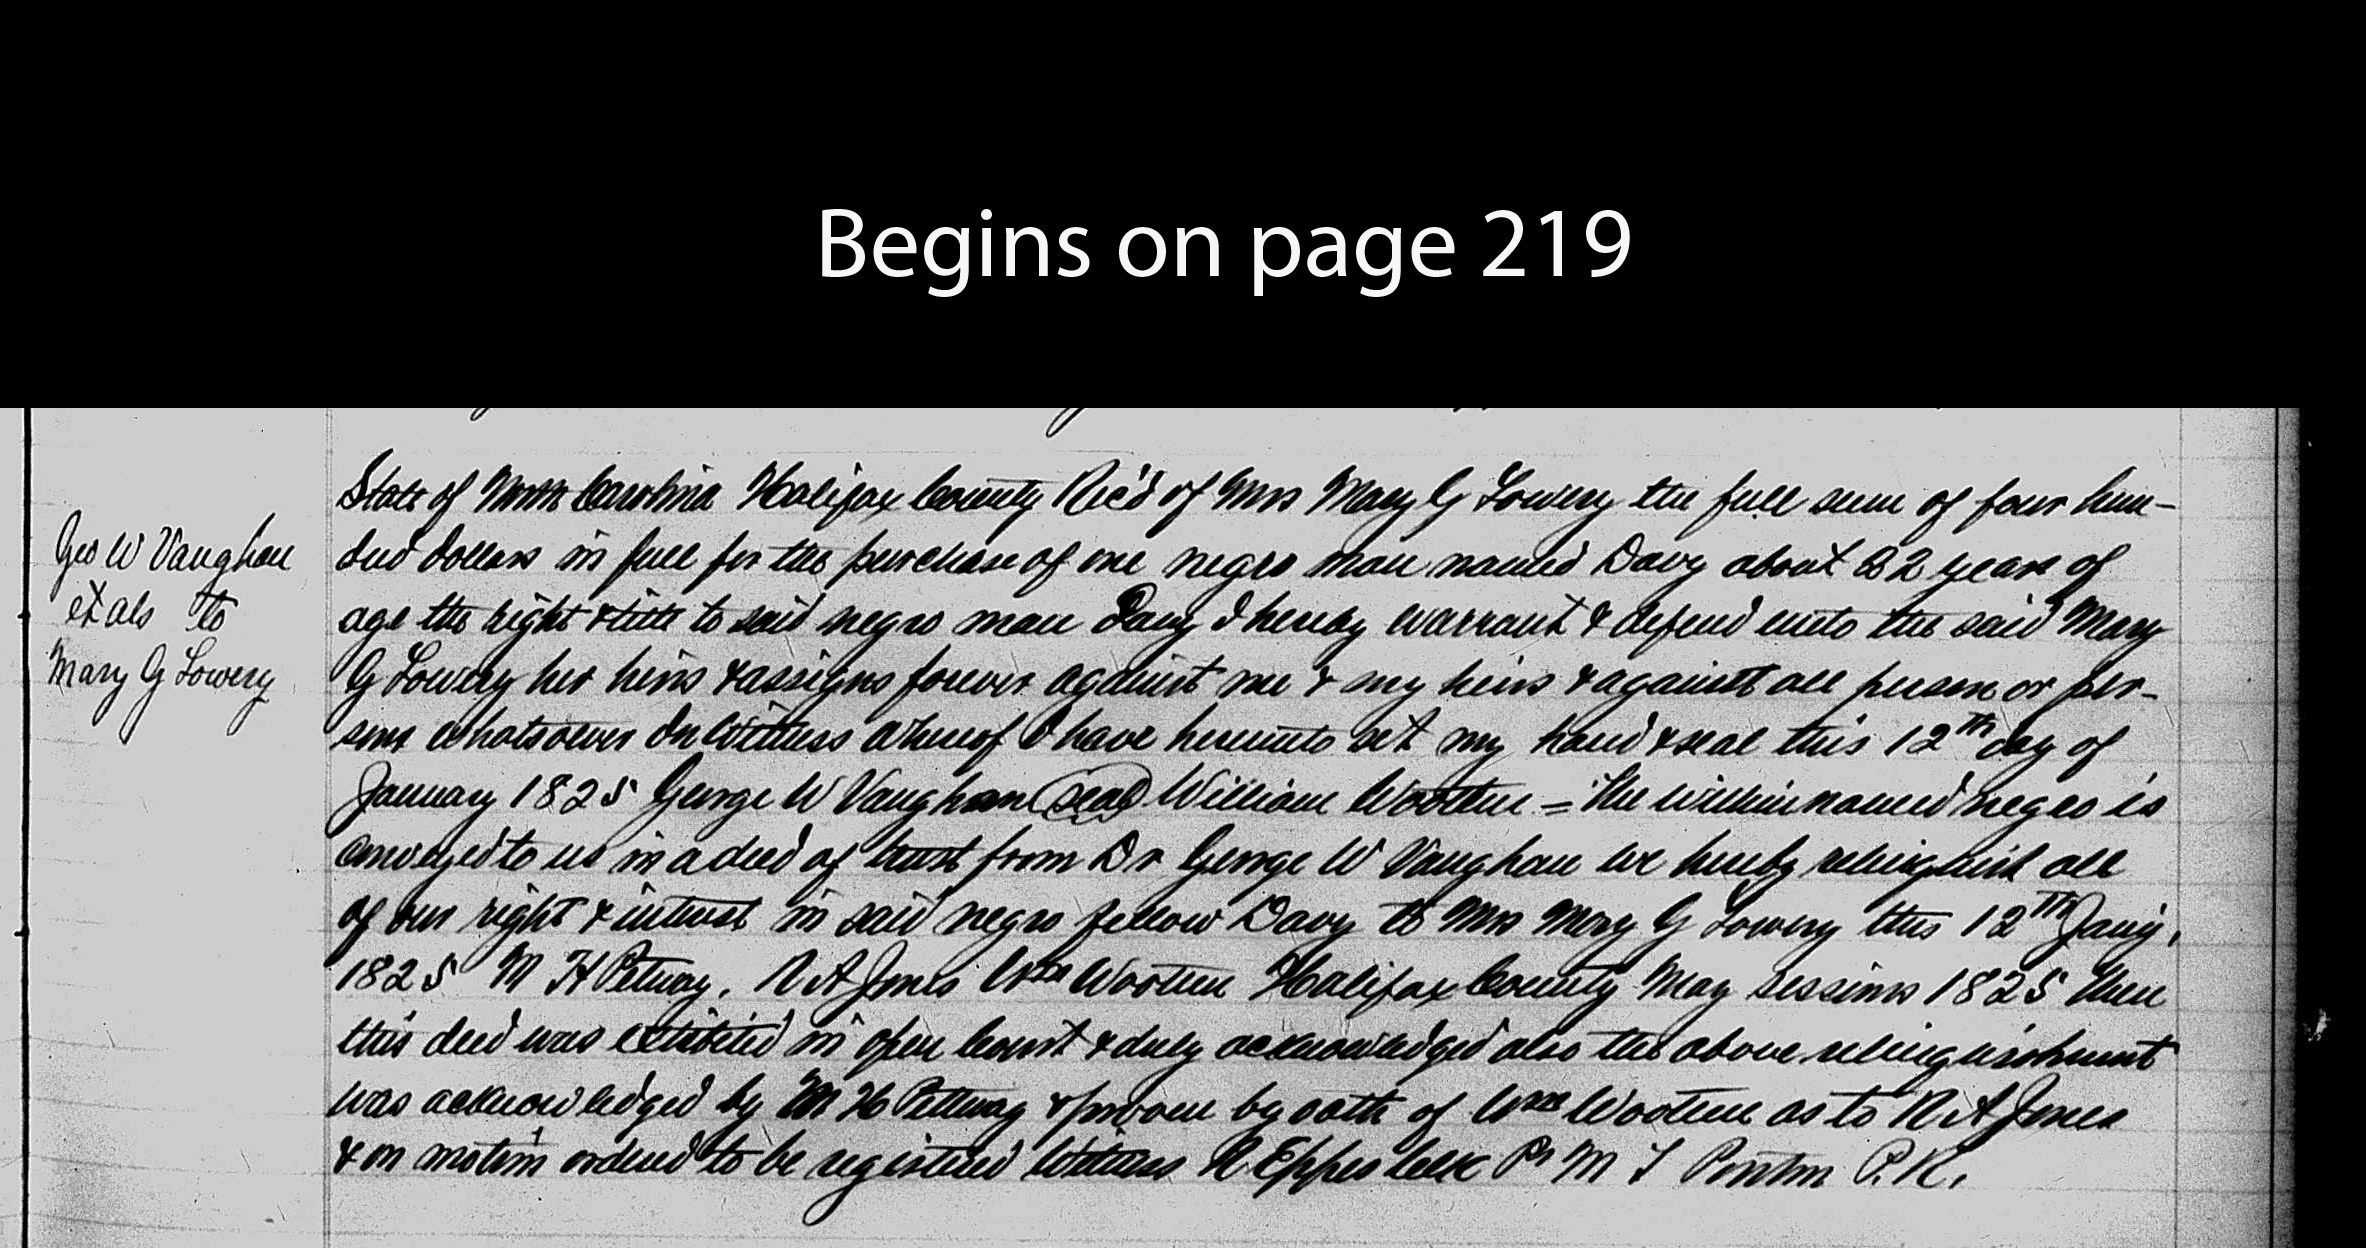 Begins on page 219
Geo W Vaughan
et als to
Mary G Lowery
State of North Carolina Halifax County Rec'd of Mrs Mary G Lowery the full sum of four hun-
dred dollars in full for the purchase of one negro man named Davy about 32 years of
age the right & title to said negro man Davy I hereby warrant & defend unto the said Mary
G Lowery her heirs & assigns forever against me & my heirs & against all person or per-
sons whatsoever In Witness whereof I have hereunto set my hand & seal this 12th day of
January 1825 George W Vaughan (seal) William Wootten = The within named negro is
conveyed to us in a deed of trust from Dr George W Vaughan we hereby relinquish all
of our right & interest in said negro fellow Davy to Mrs Mary G Lowery this 12th Jany,
1825 M H Petway, N A Jones Wm Wootten Halifax County May sessions 1825 Then
this deed was exhibited in open Court & duly acknowledged also the above relinquishment
was acknowledged by M H Pettway & proven by oath of Wm Wootten as to N A Jones
& on motion ordered to be registered Witness R Eppes Clk Pr M T Ponton P.R.